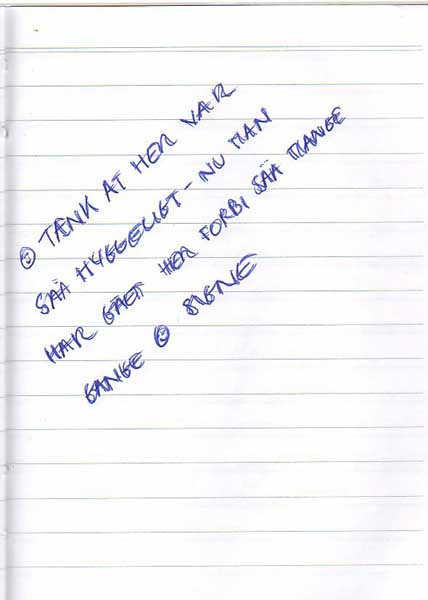 ☺ TÆNK AT HER VAR
SÅA HYGGELIGT - NU MAN
HAR GÅET HER FORBI SÅA MANGE
GANGE ☺ SIGNE